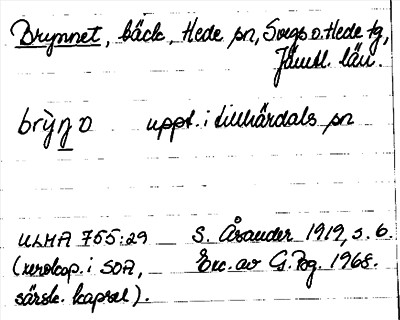 Brynnet, bäck, Hede sn, Svegs o. Hede tg,
Jämtl. län.
brỳn̲o uppt. i Lillhärdals sn
ULMA 755:29 S. Åsander 1919, s. 6.
(xerokop. i SOA, Exc. av G. Pog. 1968.
särsk. kapsel).